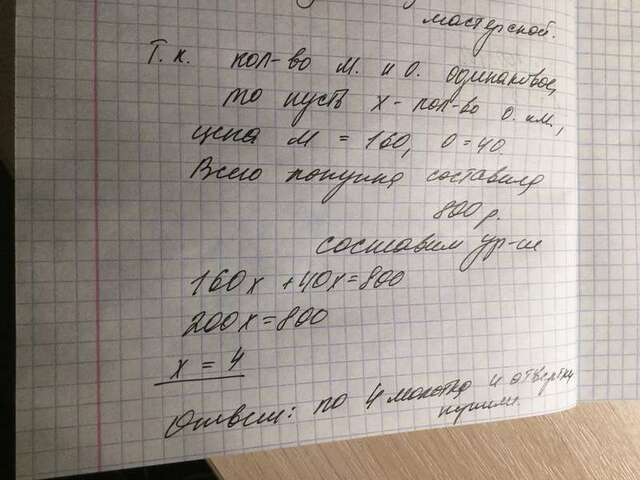 мастерской.
Т. к. кол-во м. и о. одинаковое,
то пусть х - кол-во о. и м.,
цена м = 160, о = 40.
Всего покупка составила
800 р.
составим ур-ие
160х + 40х = 800
200х = 800
х = 4
Ответ: по 4 молотка и отвертки
купили.